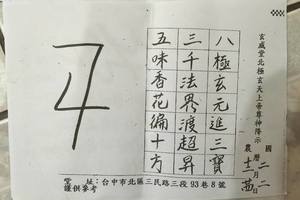 玄威堂北極玄天上帝尊神降示
國曆 二月 二日
農曆 十二月 廿日
八極玄元進三寶
三千法界渡超昇
五味香花徧十方
堂址：台中市北區三民路三段93巷8號
謹供參考